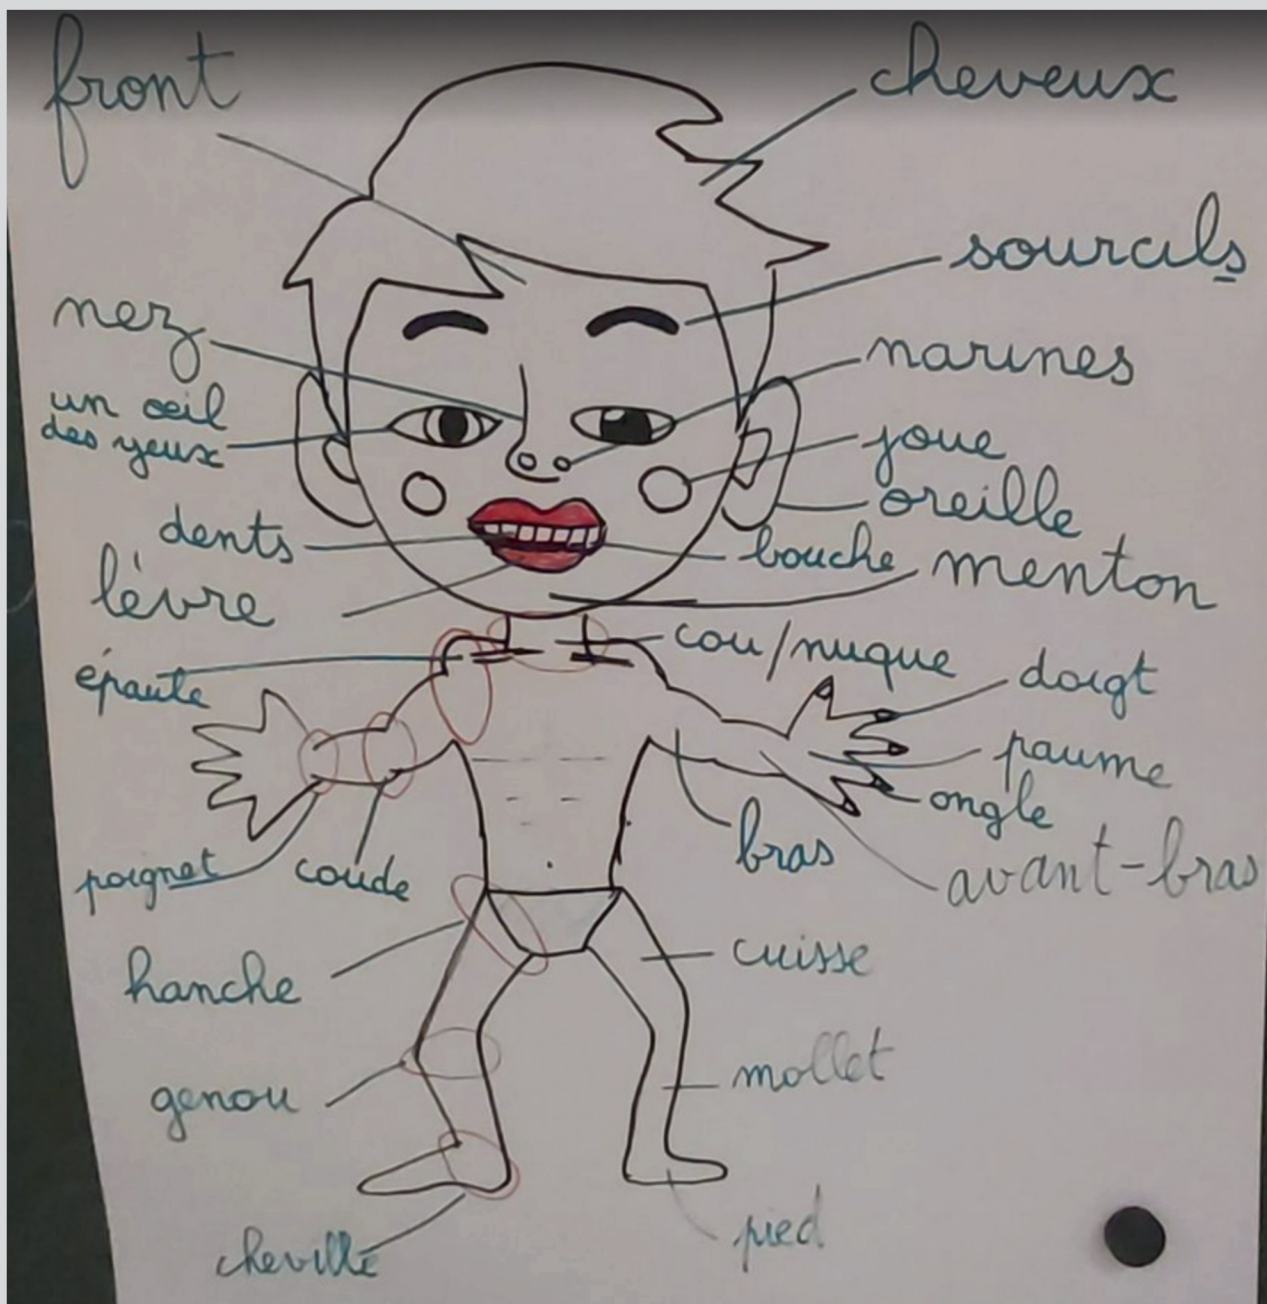 front
cheveux
sourcils
nez
narines
un œil
des yeux
joue
oreille
dents
bouche
menton
lèvre
cou/nuque
épaule
doigt
paume
ongle
bras
avant-bras
poignet
coude
hanche
cuisse
genou
mollet
cheville
pied